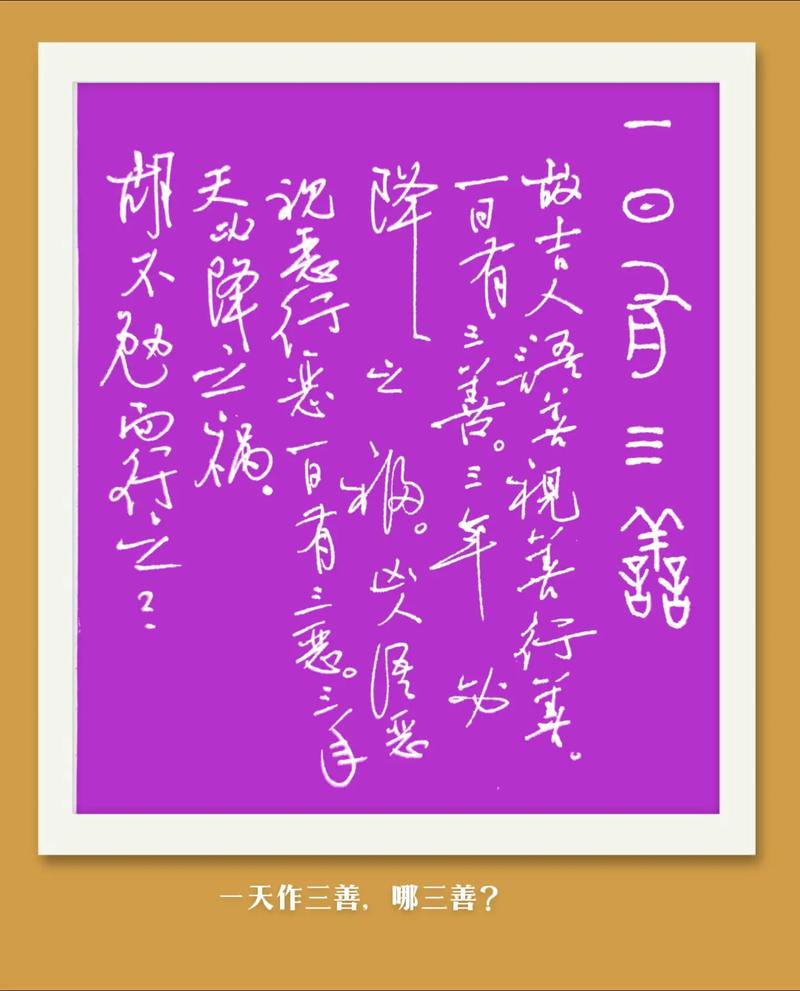 一日有三善
故吉人語善視善行善。
一日有三善。三年必
降之福。凶人语恶
视恶行恶一日有三恶。三年
天必降之祸。
胡不勉而行之？
一天作三善，哪三善？